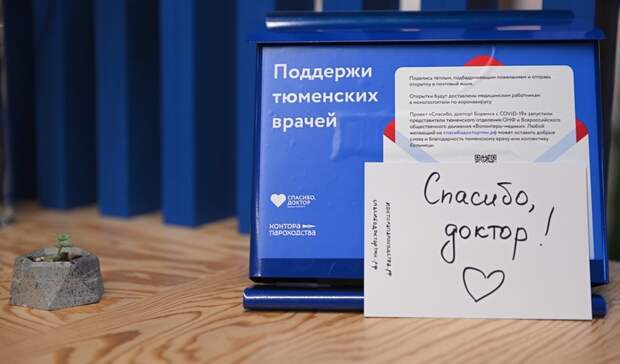 Поддержи
тюменских
врачей
Поделись тёплым, подбадривающим пожеланием и отправь
открытку в почтовый ящик
Открытки будут доставлены медицинским работникам
в моногоспитали по коронавирусу
Проект «Спасибо, доктор! Боремся с COVID-19» запустили
представители тюменского отделения ОНФ и Всероссийского
общественного движения «Волонтеры-медики». Любой
желающий на спасибодоктортмн.рф может оставить добрые
слова и благодарность тюменскому врачу или коллективу
больницы.
СПАСИБО,
ДОКТОР
КОНТОРА
ПАРОХОДСТВА
Спасибо,
доктор!